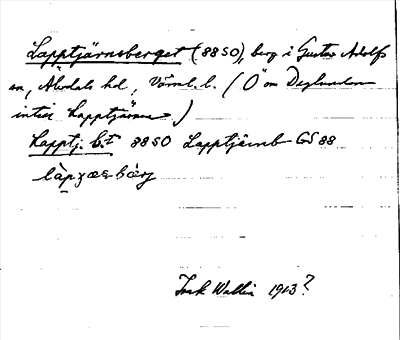 Lapptjärnsberget (88 SO), berg i Gustav Adolfs
sn, Älvdals hd, Värml. l. (Ö om Deglunden
intill Lapptjärnen)
Lapptj. b:t 88 SO Lapptjärnb GS 88

Isak Wallin 1913?